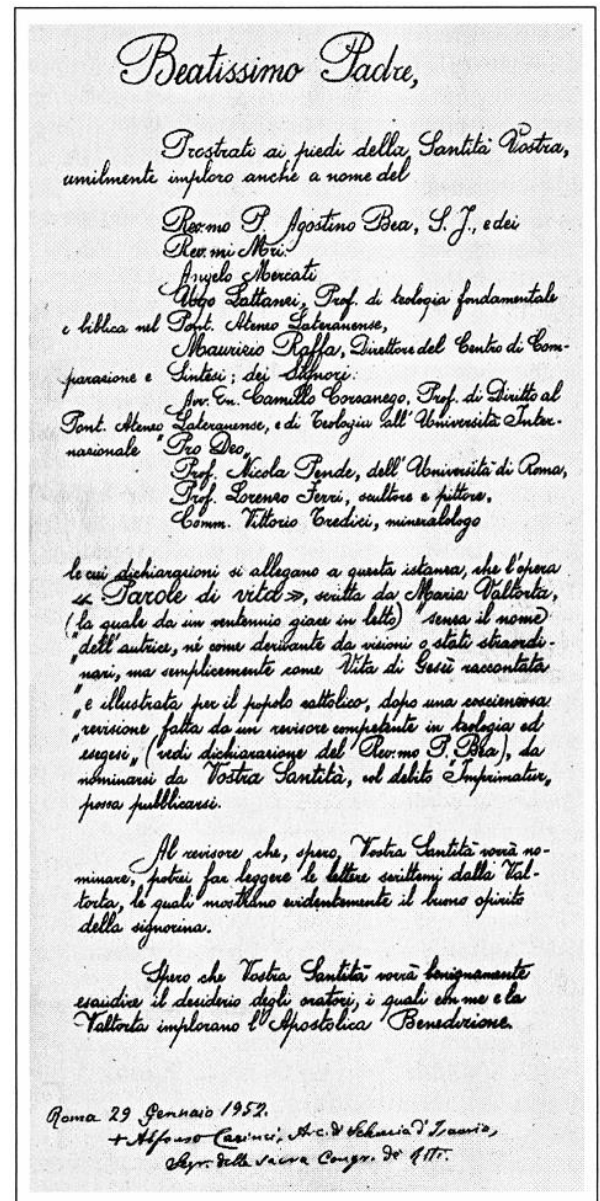 Beatissimo Padre,
Prostrati ai piedi della Santità Vostra,
umilmente imploro anche a nome del
Rev.mo P. Agostino Bea, S. J., e dei
Rev.mi Mri:
Angelo Mercati
Ugo Lattanzi, Prof. di teologia fondamentale
e biblica nel Pont. Ateneo Lateranense,
Maurizio Raffa, Direttore del Centro di Com-
parazione e Sintesi; dei Signori:
Avv. On. Camillo Corsanego, Prof. di Diritto al
Pont. Ateneo Lateranense, e di Teologia all'Università Inter-
nazionale "Pro Deo„
Prof. Nicola Pende, dell'Università di Roma,
Prof. Lorenzo Ferri, scultore e pittore,
Comm. Vittorio Tredici, mineralologo
le cui dichiarazioni si allegano a questa istanza, che l'opera
« Parole di vita », scritta da Maria Valtorta,
(la quale da un ventennio giace in letto) "senza il nome
"dell'autrice, né come derivante da visioni o stati straordi-
"nari, ma semplicemente come Vita di Gesù raccontata
"e illustrata per il popolo cattolico, dopo una coscienziosa
"revisione fatta da un revisore competente in teologia ed
esegesi„ (vedi dichiarazione del Rev.mo P. Bea), da
nominarsi da Vostra Santità, col debito "Imprimatur„
possa pubblicarsi.
Al revisore che, spero, Vostra Santità vorrà no-
minare, potrei far leggere le lettere scrittemi dalla Val-
torta, le quali mostrano evidentemente il buono spirito
della signorina.
Spero che Vostra Santità vorrà benignamente
esaudire il desiderio degli oratori, i quali con me e la
Valtorta implorano l'Apostolica Benedizione.
Roma 29 Gennaio 1952.
+ Alfonso Carinci, Arc. di Seleucia d'Isauria,
Segr. della sacra Congr. dei Riti.